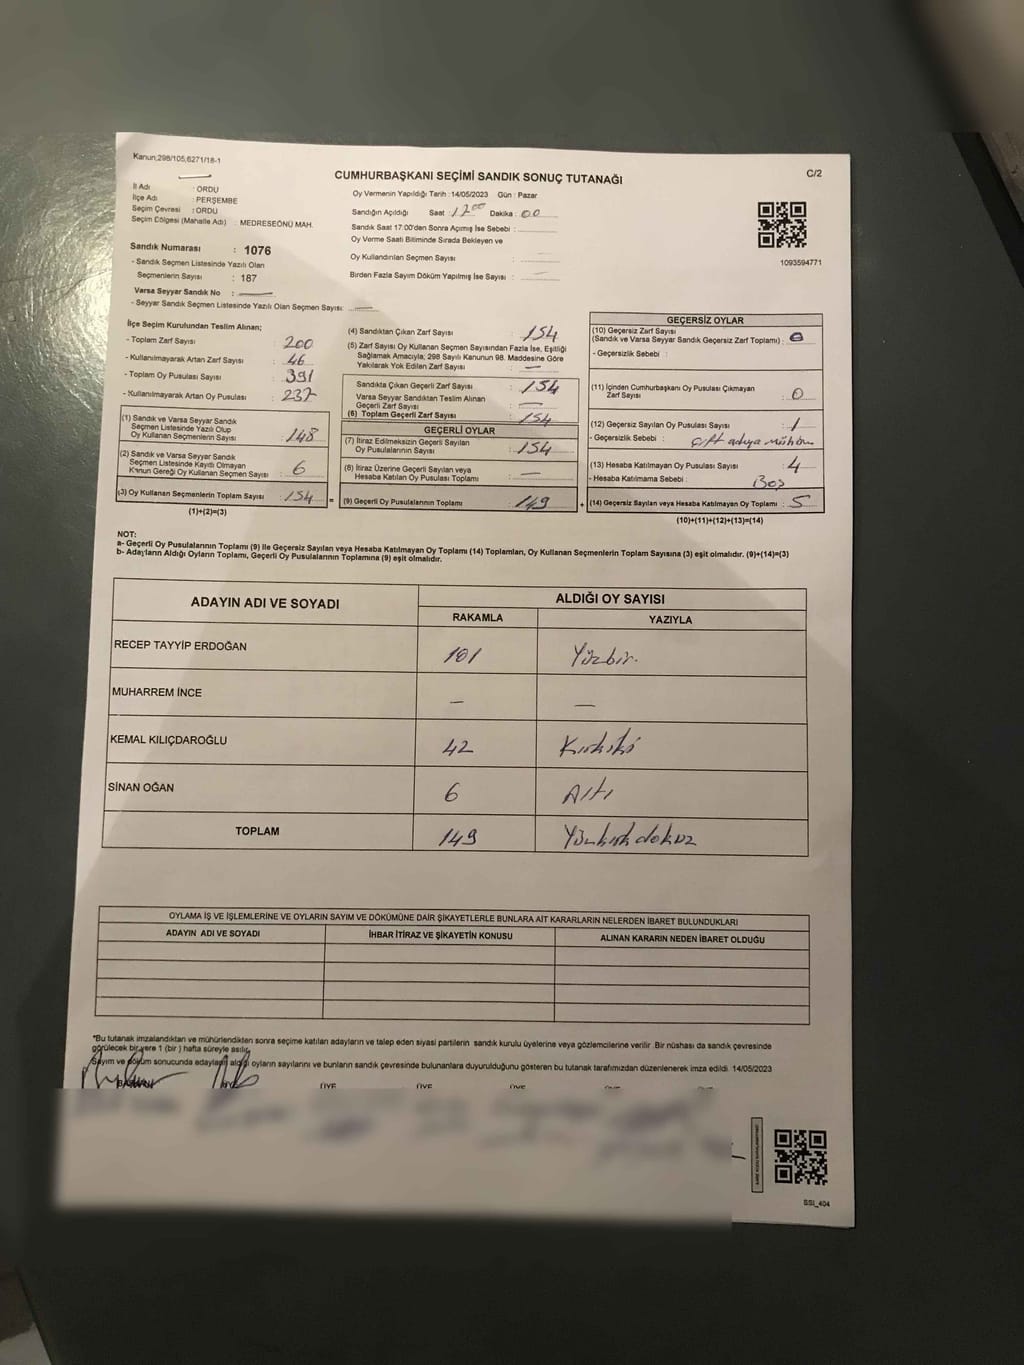 Kanun,298/105,6271/18-1
CUMHURBAŞKANI SEÇİMİ SANDIK SONUÇ TUTANAĞI
C/2
İl Adı : ORDU
İlçe Adı : PERŞEMBE
Seçim Çevresi : ORDU
Seçim Bölgesi (Mahalle Adı) : MEDRESEÖNÜ MAH.
Sandık Numarası : 1076
- Sandık Seçmen Listesinde Yazılı Olan
Seçmenlerin Sayısı : 187
Varsa Seyyar Sandık No :
- Seyyar Sandık Seçmen Listesinde Yazılı Olan Seçmen Sayısı:
Oy Vermenin Yapıldığı Tarih : 14/05/2023 Gün : Pazar
Sandığın Açıldığı Saat : 17 00 Dakika : 00
Sandık Saat 17:00'den Sonra Açılmış İse Sebebi :
Oy Verme Saati Bitiminde Sırada Bekleyen ve
Oy Kullandırılan Seçmen Sayısı :
Birden Fazla Sayım Döküm Yapılmış İse Sayısı :
1093594771
İlçe Seçim Kurulundan Teslim Alınan;
- Toplam Zarf Sayısı : 200
- Kullanılmayarak Artan Zarf Sayısı : 46
- Toplam Oy Pusulası Sayısı : 391
- Kullanılmayarak Artan Oy Pusulası : 237
(1) Sandık ve Varsa Seyyar Sandık
Seçmen Listesinde Yazılı Olup
Oy Kullanan Seçmenlerin Sayısı : 148
(2) Sandık ve Varsa Seyyar Sandık
Seçmen Listesinde Kayıtlı Olmayan
Kanun Gereği Oy Kullanan Seçmen Sayısı : 6
(3) Oy Kullanan Seçmenlerin Toplam Sayısı : 154 =
(1)+(2)=(3)
(4) Sandıktan Çıkan Zarf Sayısı : 154
(5) Zarf Sayısı Oy Kullanan Seçmen Sayısından Fazla İse, Eşitliği
Sağlamak Amacıyla; 298 Sayılı Kanunun 98. Maddesine Göre
Yakılarak Yok Edilen Zarf Sayısı : —
Sandıkta Çıkan Geçerli Zarf Sayısı : 154
Varsa Seyyar Sandıktan Teslim Alınan
Geçerli Zarf Sayısı : —
(6) Toplam Geçerli Zarf Sayısı : 154
GEÇERLİ OYLAR
(7) İtiraz Edilmeksizin Geçerli Sayılan
Oy Pusulalarının Sayısı : 154
(8) İtiraz Üzerine Geçerli Sayılan veya
Hesaba Katılan Oy Pusulası Toplamı : —
(9) Geçerli Oy Pusulalarının Toplamı : 149 +
GEÇERSİZ OYLAR
(10) Geçersiz Zarf Sayısı
(Sandık ve Varsa Seyyar Sandık Geçersiz Zarf Toplamı) : 0
- Geçersizlik Sebebi :
(11) İçinden Cumhurbaşkanı Oy Pusulası Çıkmayan
Zarf Sayısı : 0
(12) Geçersiz Sayılan Oy Pusulası Sayısı : 1
- Geçersizlik Sebebi : çift adaya mühür
(13) Hesaba Katılmayan Oy Pusulası Sayısı : 4
- Hesaba Katılmama Sebebi : Boş
(14) Geçersiz Sayılan veya Hesaba Katılmayan Oy Toplamı : 5
(10)+(11)+(12)+(13)=(14)
NOT:
a- Geçerli Oy Pusulalarının Toplamı (9) ile Geçersiz Sayılan veya Hesaba Katılmayan Oy Toplamı (14) Toplamları, Oy Kullanan Seçmenlerin Toplam Sayısına (3) eşit olmalıdır. (9)+(14)=(3)
b- Adayların Aldığı Oyların Toplamı, Geçerli Oy Pusulalarının Toplamına (9) eşit olmalıdır.
ADAYIN ADI VE SOYADI ALDIĞI OY SAYISI
RAKAMLA YAZIYLA
RECEP TAYYİP ERDOĞAN 101 Yüzbir.
MUHARREM İNCE — —
KEMAL KILIÇDAROĞLU 42 Kırkiki
SİNAN OĞAN 6 Altı
TOPLAM 149 Yüzkırkdokuz
OYLAMA İŞ VE İŞLEMLERİNE VE OYLARIN SAYIM VE DÖKÜMÜNE DAİR ŞİKAYETLERLE BUNLARA AİT KARARLARIN NELERDEN İBARET BULUNDUKLARI
ADAYIN ADI VE SOYADI İHBAR İTİRAZ VE ŞİKAYETİN KONUSU ALINAN KARARIN NEDEN İBARET OLDUĞU
*Bu tutanak imzalandıktan ve mühürlendikten sonra seçime katılan adayların ve talep eden siyasi partilerin sandık kurulu üyelerine veya gözlemcilerine verilir. Bir nüshası da sandık çevresinde
görülecek bir yere 1 (bir ) hafta süreyle asılır.
Sayım ve döküm sonucunda adayların aldığı oyların sayılarını ve bunların sandık çevresinde bulunanlara duyurulduğunu gösteren bu tutanak tarafımızdan düzenlenerek imza edildi. 14/05/2023
BAŞKAN ÜYE ÜYE ÜYE ÜYE
SSI_404